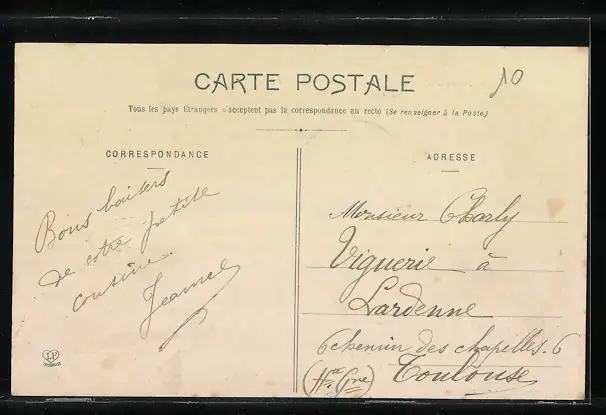 CARTE POSTALE
10
Tous les pays Etrangers n'acceptent pas la correspondance au recto (Se renseigner à la Poste)
CORRESPONDANCE
ADRESSE
Bons baisers
de votre petite
cousine.
Jeanne
Monsieur Charly
Viguerie à
Lardenne
6 chemin des chapelles. 6
(Hte Gne) Toulouse